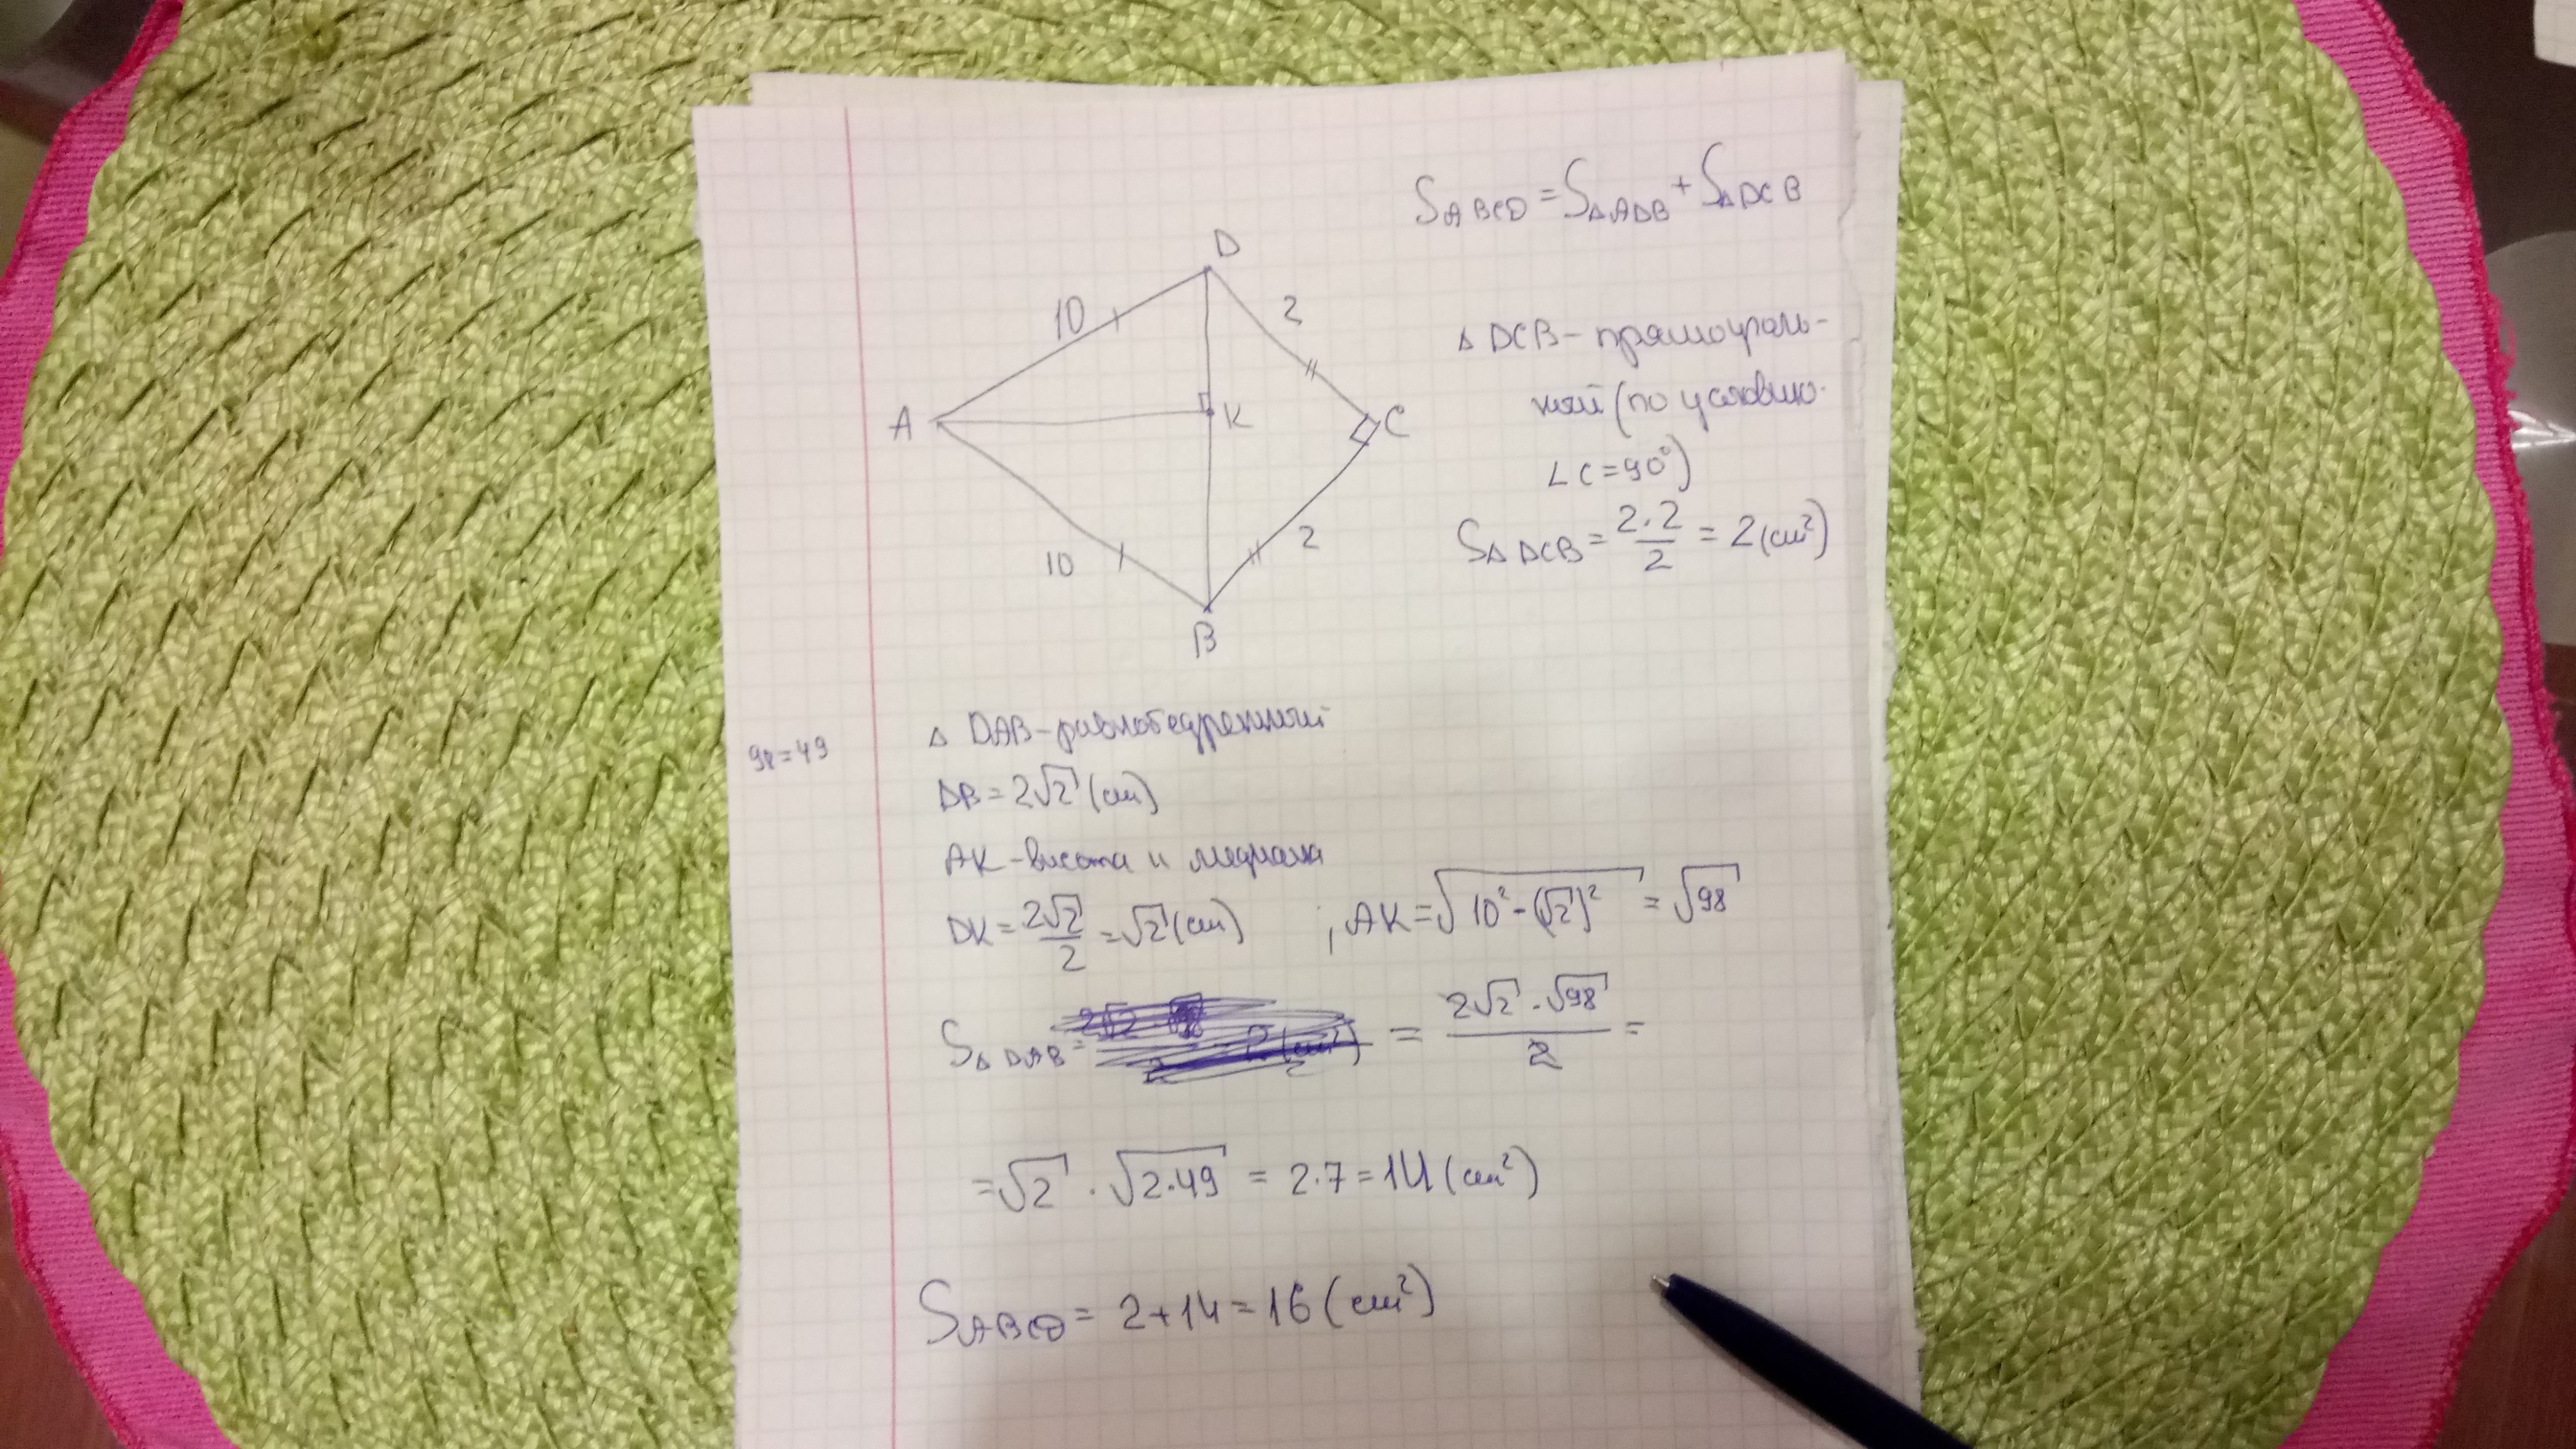 S ABCD = S∆ADB + S∆DCB
D
10
2
A
K
C
10
2
B
∆ DCB - прямоуголь-
ный (по условию.
∠C = 90°)
S∆ DCB = 2·2/2 = 2 (см²)
98=49
∆ DAB - равнобедренный
DB = 2√2 (см)
AK - высота и медиана
DK = 2√2/2 = √2 (см) ; AK = √(10² - (√2)²) = √98
S∆ DAB = = 2√2 · √98/2 =
= √2 · √(2·49) = 2·7 = 14 (см²)
S ABCD = 2+14 = 16 (см²)